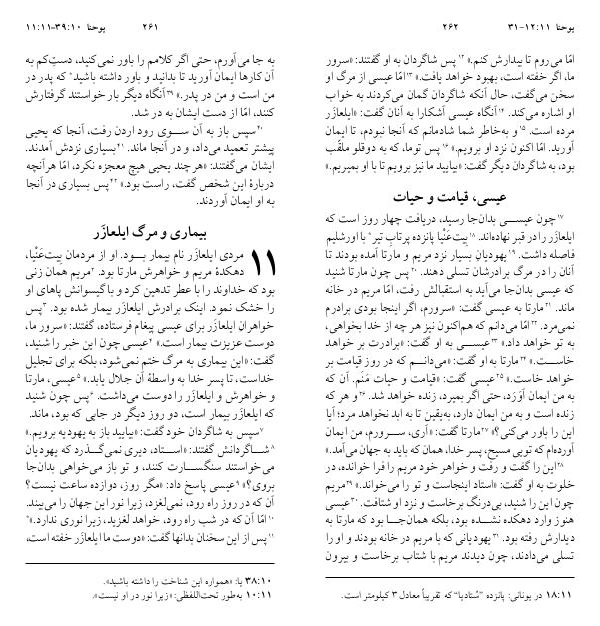 ۲۶۱ یوحنا ۱۰:‏۳۹-‏۱۱:‏۱۱
به جا می‌آورم، حتی اگر کلامم را باور نمی‌کنید، دست‌کم به
آن کارها ایمان آورید تا بدانید و باور داشته باشید* که پدر در
من است و من در پدر.» ۳۹آنگاه دیگر بار خواستند گرفتارش
کنند، امّا از دست ایشان به در شد.
۴۰سپس باز به آن ســوی رود اردن رفت، آنجا که یحیی
پیشتر تعمید می‌داد، و در آنجا ماند. ۴۱بسیاری نزدش آمدند.
ایشان می‌گفتند: «هر چند یحیی هیچ معجزه نکرد، امّا هرآنچه
دربارهٔ این شخص گفت، راست بود.» ۴۲پس بسیاری در آنجا
به او ایمان آوردند.
بیماری و مرگ ایلعازَر
۱۱ مردی ایلعازَر نام بیمار بــود. او از مردمان بِیت‌عَنْیا،
دهکدهٔ مریم و خواهرش مارتا بود. ۲مریم همان زنی
بود که خداوند را با عطر تدهین کرد و با گیسوانش پاهای او
را خشک نمود. اینک برادرش ایلعازَر بیمار شده بود. ۳پس
خواهران ایلعازَر برای عیسی پیغام فرستاده، گفتند: «سرور ما،
دوست عزیزت بیمار است.» ۴عیسی چون این خبر را شنید،
گفت: «این بیماری به مرگ ختم نمی‌شود، بلکه برای تجلیل
خداست، تا پسر خدا به واسطهٔ آن جلال یابد.» ۵عیسی، مارتا
و خواهرش و ایلعازَر را دوست می‌داشت. ۶پس چون شنید
که ایلعازَر بیمار است، دو روز دیگر در جایی که بود، ماند.
۷سپس به شاگردان خود گفت: «بیایید باز به یهودیه برویم.»
۸شــاگردانش گفتند: «اســتاد، دیری نمی‌گــذرد که یهودیان
می‌خواستند سنگســارت کنند، و تو باز می‌خواهی بدان‌جا
بروی؟» ۹عیسی پاسخ داد: «مگر روز، دوازده ساعت نیست؟
آن که در روز راه رود، نمی‌لغزد، زیرا نور این جهان را می‌بیند.
۱۰امّا آن که در شب راه رود، خواهد لغزید، زیرا نوری ندارد.»*
۱۱پس از این سخنان بدانها گفت: «دوست ما ایلعازَر خفته است،
۱۰:‏۳۸ یا: «همواره این شناخت را داشته باشید».
۱۱:‏۱۰ به‌طور تحت‌اللفظی: «زیرا نور در او نیست».
یوحنا ۱۱:‏۱۲-‏۳۱ ۲۶۲
امّا می‌روم تا بیدارش کنم.» ۱۲پس شاگردان به او گفتند: «سرور
ما، اگر خفته است، بهبود خواهد یافت.» ۱۳امّا عیسی از مرگ او
سخن می‌گفت، حال آنکه شاگردان گمان می‌کردند به خواب
او اشاره می‌کند. ۱۴آنگاه عیسی آشکارا به آنان گفت: «ایلعازَر
مرده است. ۱۵و به‌خاطر شما شادمانم که آنجا نبودم، تا ایمان
آورید. امّا اکنون نزد او برویم.» ۱۶پس توما، که به دوقلو ملقّب
بود، به شاگردان دیگر گفت: «بیایید ما نیز برویم تا با او بمیریم.»
عیسی، قیامت و حیات
۱۷چون عیســی بدان‌جا رسید، دریافت چهار روز است که
ایلعازَر را در قبر نهاده‌اند. ۱۸بِیت‌عَنْیا پانزده پرتابِ تیر* با اورشلیم
فاصله داشت. ۱۹یهودیانِ بسیار نزد مریم و مارتا آمده بودند تا
آنان را در مرگ برادرشان تسلی دهند. ۲۰پس چون مارتا شنید
که عیسی بدان‌جا می‌آید به استقبالش رفت، امّا مریم در خانه
ماند. ۲۱مارتا به عیسی گفت: «سرورم، اگر اینجا بودی برادرم
نمی‌مرد. ۲۲امّا می‌دانم که هم‌اکنون نیز هر چه از خدا بخواهی،
به تو خواهد داد.» ۲۳عیســی به او گفت: «برادرت بر خواهد
خاســت.» ۲۴مارتا به او گفت: «می‌دانــم که در روز قیامت بر
خواهد خاست.» ۲۵عیسی گفت: «قیامت و حیات مَنَم. آن که
به من ایمان آوَرَد، حتی اگر بمیرد، زنده خواهد شد. ۲۶و هر که
زنده است و به من ایمان دارد، به‌یقین تا به ابد نخواهد مرد؛ آیا
این را باور می‌کنی؟» ۲۷مارتا گفت: «آری، ســرورم، من ایمان
آورده‌ام که تویی مسیح، پسر خدا، همان که باید به جهان می‌آمد.»
۲۸این را گفت و رفت و خواهر خود مریم را فرا خوانده، در
خلوت به او گفت: «استاد اینجاست و تو را می‌خواند.» ۲۹مریم
چون این را شنید، بی‌درنگ برخاست و نزد او شتافت. ۳۰عیسی
هنوز وارد دهکده نشــده بود، بلکه همان‌جــا بود که مارتا به
دیدارش رفته بود. ۳۱یهودیانی که با مریم در خانه بودند و او را
تسلی می‌دادند، چون دیدند مریم با شتاب برخاست و بیرون
۱۱:‏۱۸ در یونانی: پانزده "سْتادیا" که تقریباً معادل ۳ کیلومتر است.